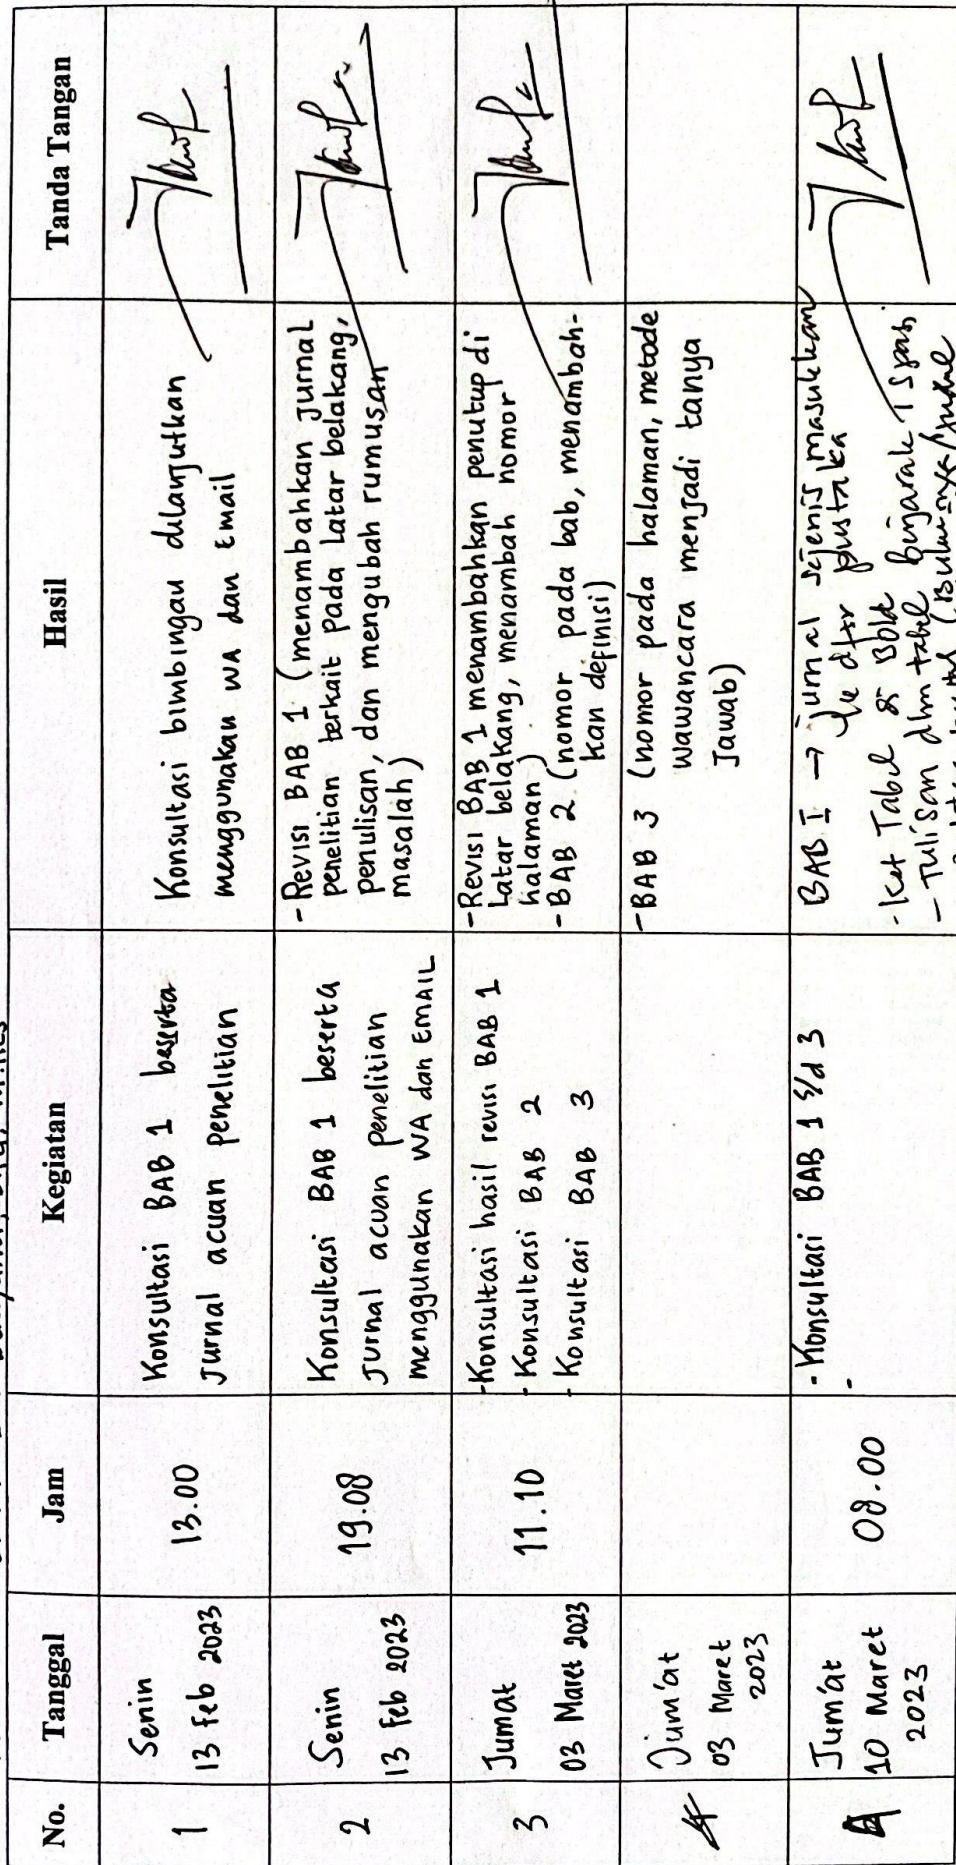 No. Tanggal Jam Kegiatan Hasil Tanda Tangan
1
Senin
13 Feb 2023
13.00
Konsultasi BAB 1 beserta
Jurnal acuan penelitian
Konsultasi bimbingan dilanjutkan
menggunakan WA dan Email
2
Senin
13 Feb 2023
19.08
Konsultasi BAB 1 beserta
Jurnal acuan penelitian
menggunakan WA dan EMAIL
- Revisi BAB 1 (menambahkan Jurnal
penelitian terkait pada latar belakang,
penulisan, dan mengubah rumusan
masalah)
3
Jumat
03 Maret 2023
11.10
- Konsultasi hasil revisi BAB 1
- Konsultasi BAB 2
- Konsultasi BAB 3
- Revisi BAB 1 menambahkan penutup di
Latar belakang, menambah nomor
halaman)
- BAB 2 (nomor pada bab, menambah-
kan definisi)
Jum'at
03 Maret
2023
- BAB 3 (nomor pada halaman, metode
wawancara menjadi tanya
Jawab)
4
Jum'at
10 Maret
2023
08.00
- Konsultasi BAB 1 s/d 3
-
BAB I → Jurnal sejenis masukkan
ke dftr pustaka
- Ket Tabel di Bold
- Tulisan dlm tabel Berjarak 1 spasi